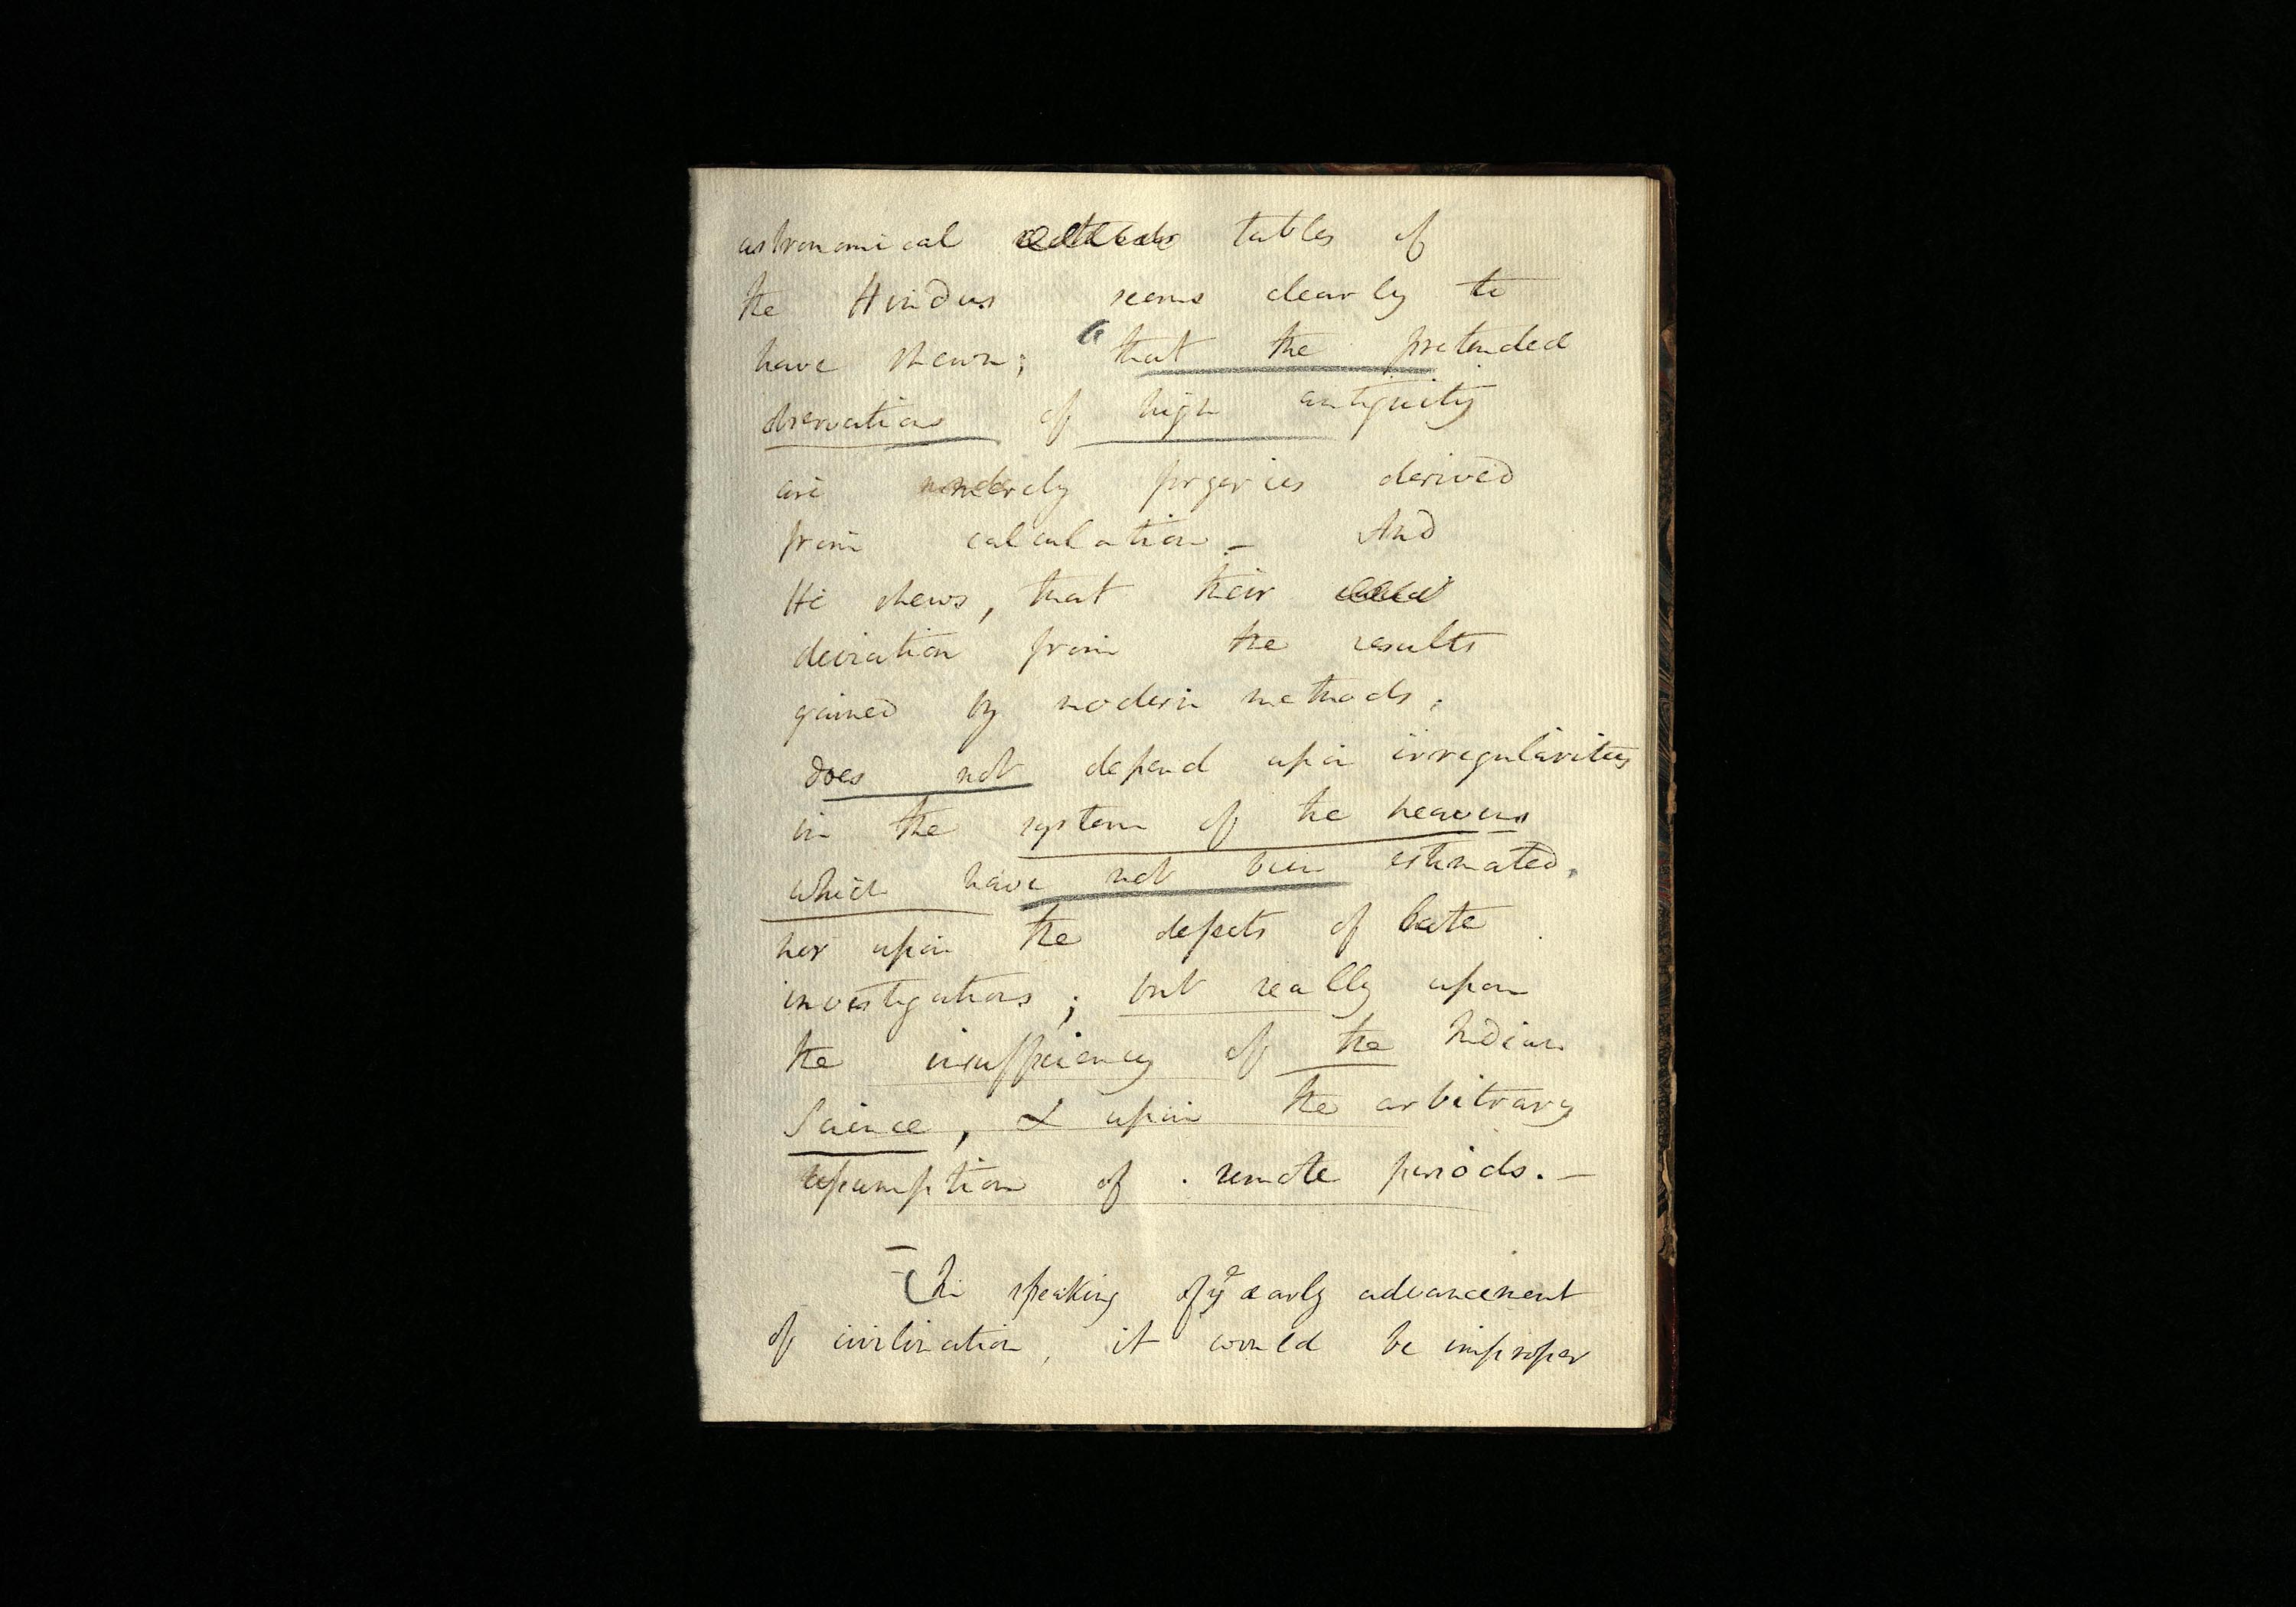 astronomical tables of
the Hindus seems clearly to
have shewn; that the pretended
observations of high antiquity
are merely forgeries derived
from calculation – And
He shews, that their
deviation from the results
gained by modern methods,
does not depend upon irregularities
in the system of the heavens
which have not been estimated,
nor upon the defects of late
investigations; but really upon
the insufficiency of the Indian
Science, & upon the arbitrary
assumption of remote periods. –
In speaking of ye early advancement
of civilization, it would be improper